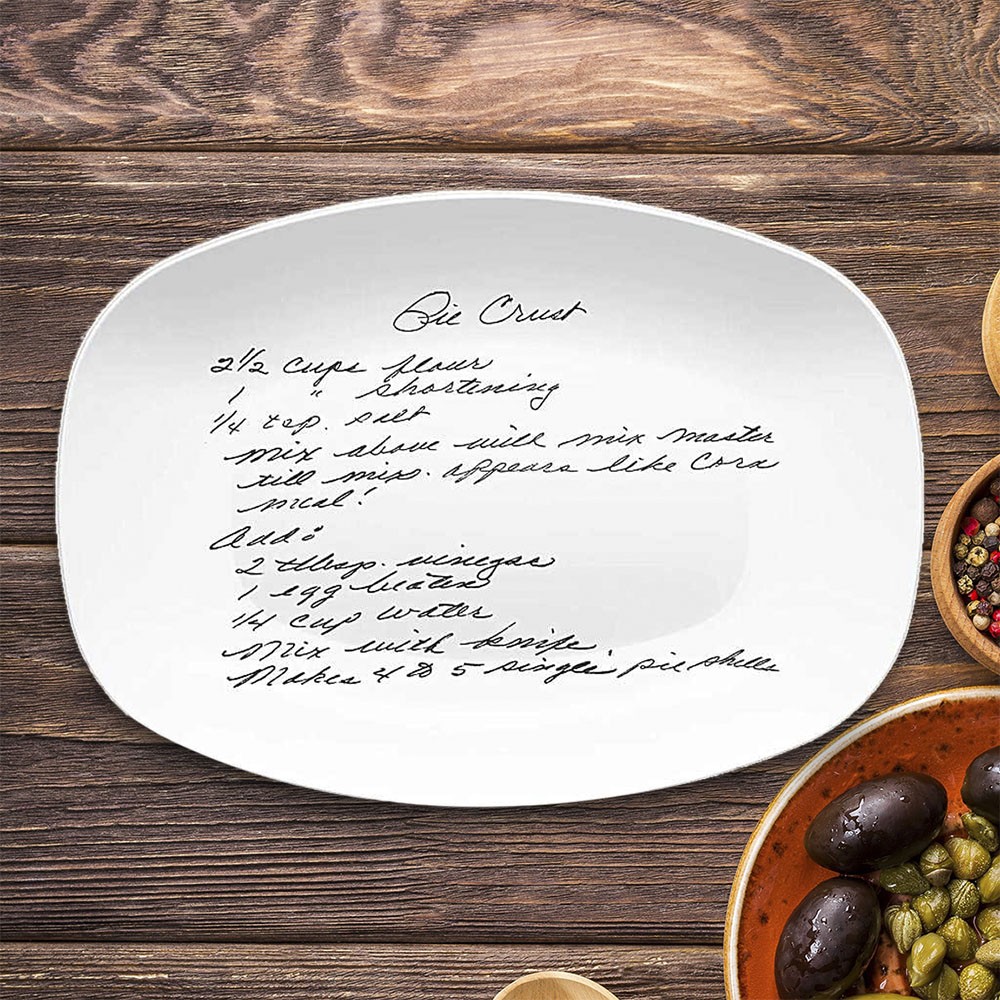 Pie Crust
2 1/2 cups flour
1 " shortening
1/4 tsp. salt
mix above with mix master
till mix. appears like corn
meal!
Add:
2 tblsp. vinegar
1 egg beaten
1/4 cup water
Mix with knife.
Makes 4 to 5 single pie shells